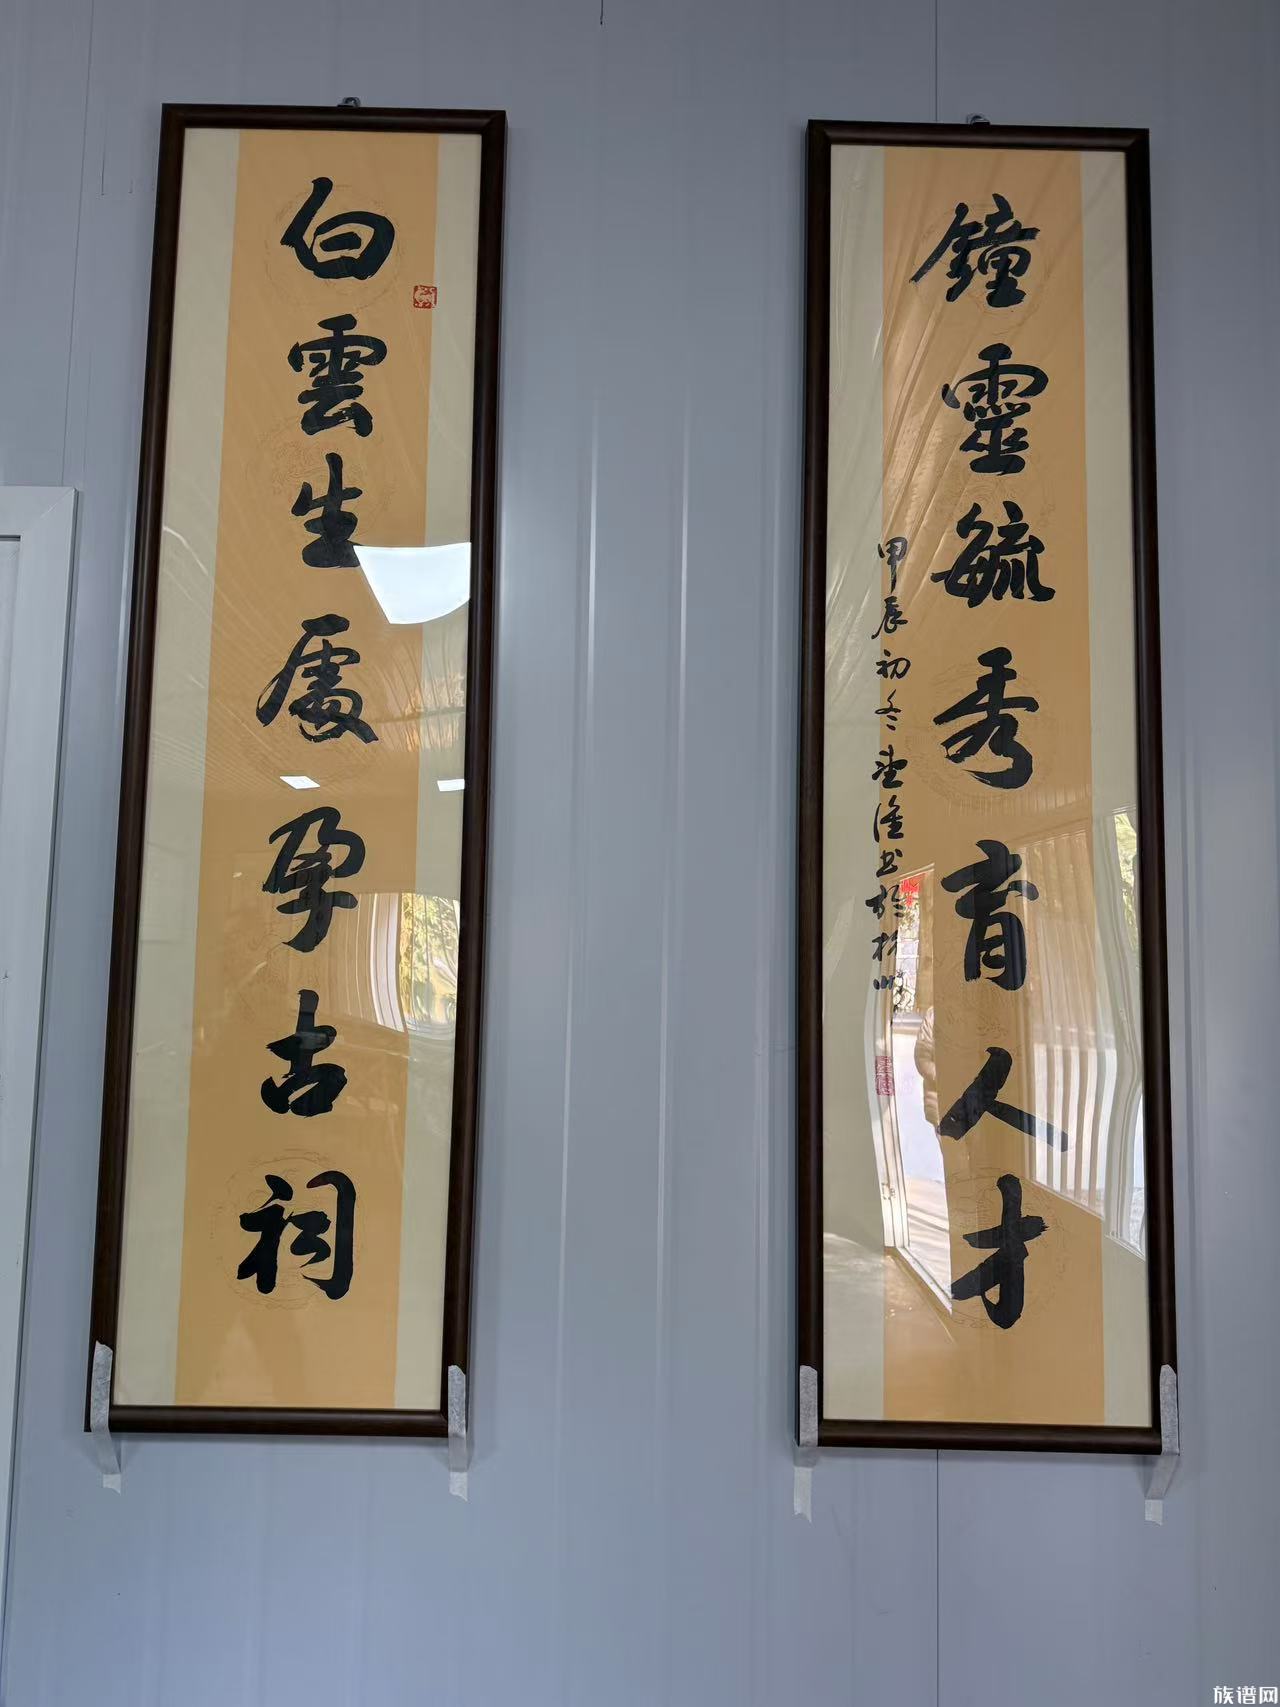 鐘靈毓秀育人才
甲辰初冬
書於杭州
白雲生處孕古祠
族谱网